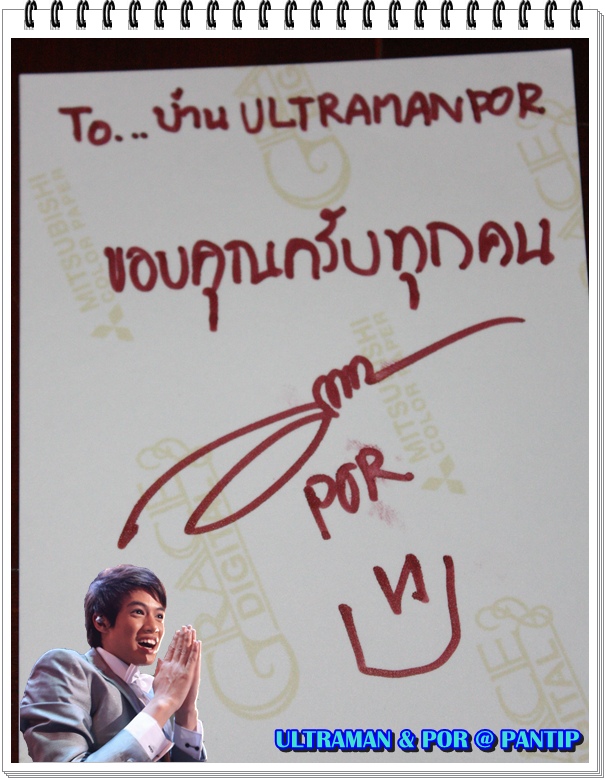 To... บ้าน ULTRAMANPOR
ขอบคุณครับทุกคน
POR
MITSUBISHI
COLOR PAPER
MITSUBISHI
COLOR PAPER
GRACE
DIGITAL
ULTRAMAN & POR @ PANTIP